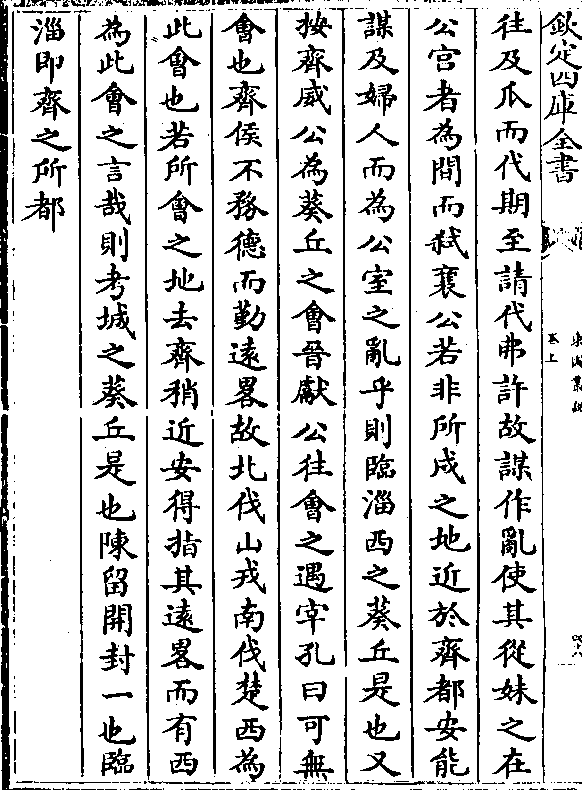 欽定四庫全書
卷上
往及爪而代期至請代弗許故謀作亂使其從妹之在
公宮者為間而弑襄公若非所戍之地近於齊都安能
謀及婦人而為公室之亂乎則臨淄西之葵丘是也又
按齊威公為葵丘之會晉獻公往會之遇宰孔曰可無
會也齊侯不務德而勤遠畧故北伐山戎南伐楚西為
此會也若所會之地去齊稍近安得指其遠畧而有西
為此會之言哉則考城之葵丘是也陳留開封一也臨
淄即齊之所都